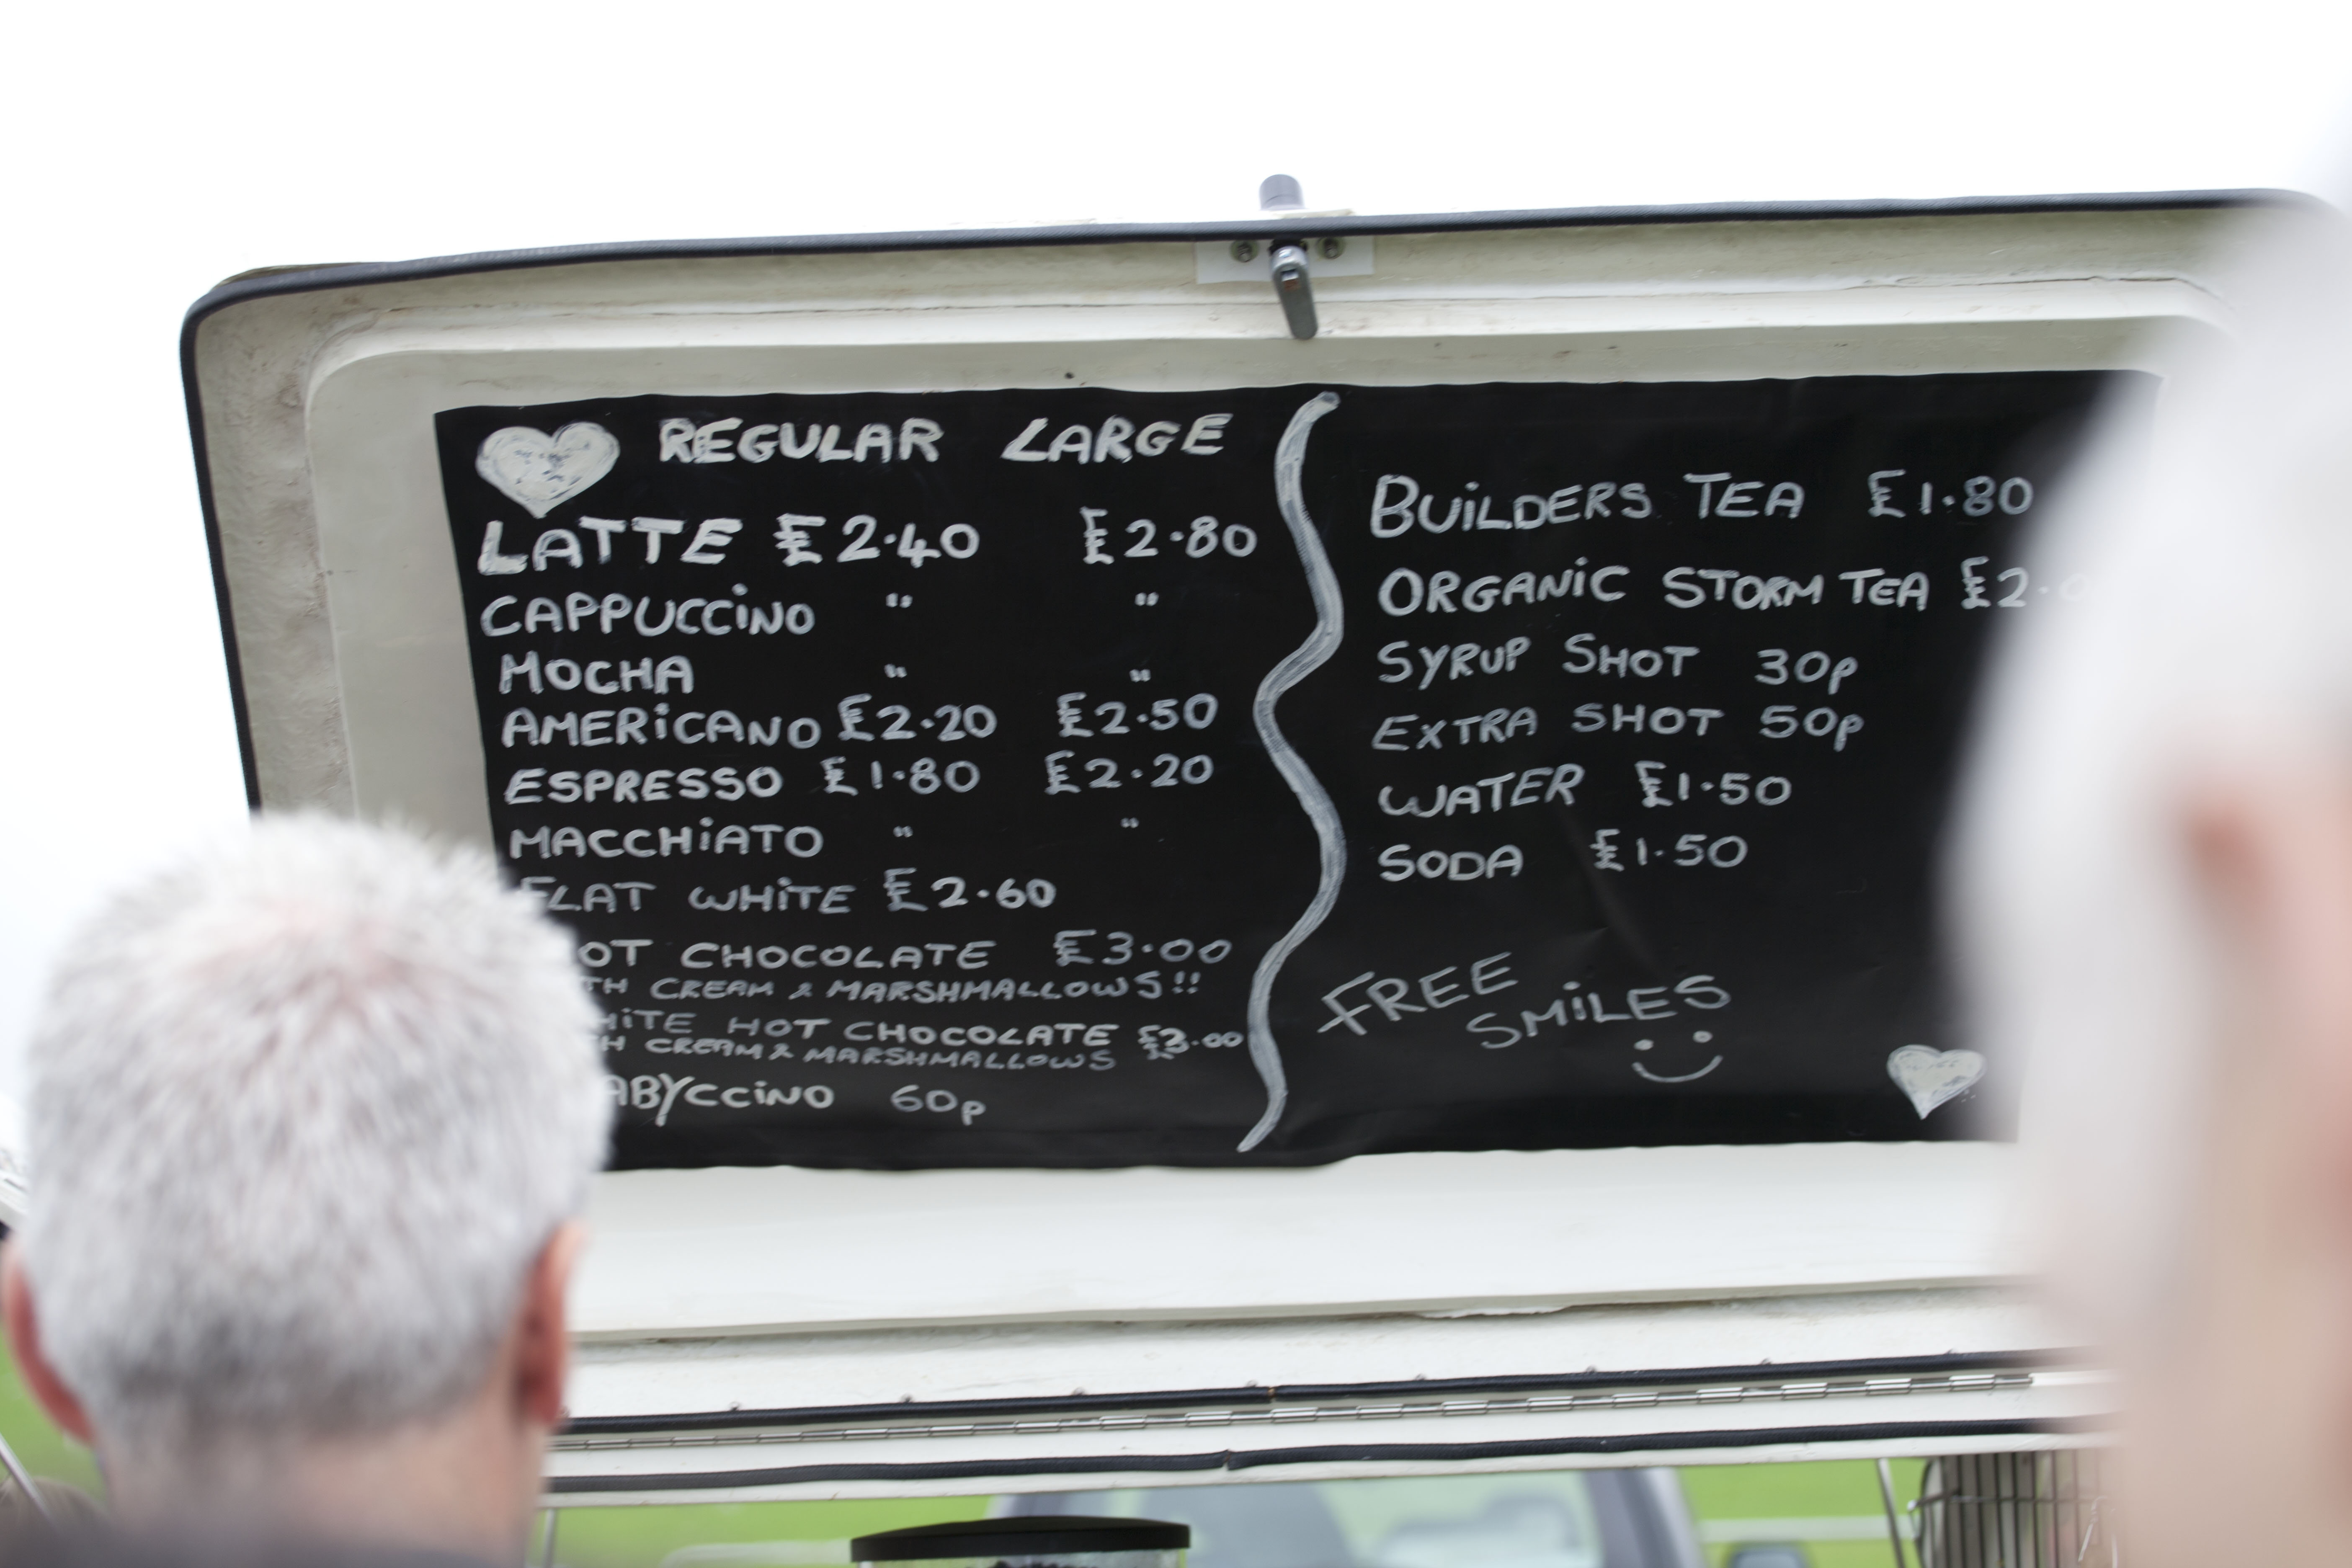 REGULAR LARGE
LATTE £2.40 £2.80
CAPPUCCiNO " "
MOCHA " "
AMERiCANO £2.20 £2.50
ESPRESSO £1.80 £2.20
MACCHiATO " "
FLAT WHiTE £2.60
OT CHOCOLATE £3.00
TH CREAM & MARSHMALLOWS!!
HiTE HOT CHOCOLATE £3.00
H CREAM & MARSHMALLOWS
ABYCCiNO 60p
BUiLDERS TEA £1.80
ORGANiC STORM TEA £2.0
SYRUP SHOT 30p
EXTRA SHOT 50p
WATER £1.50
SODA £1.50
FREE
SMiLES